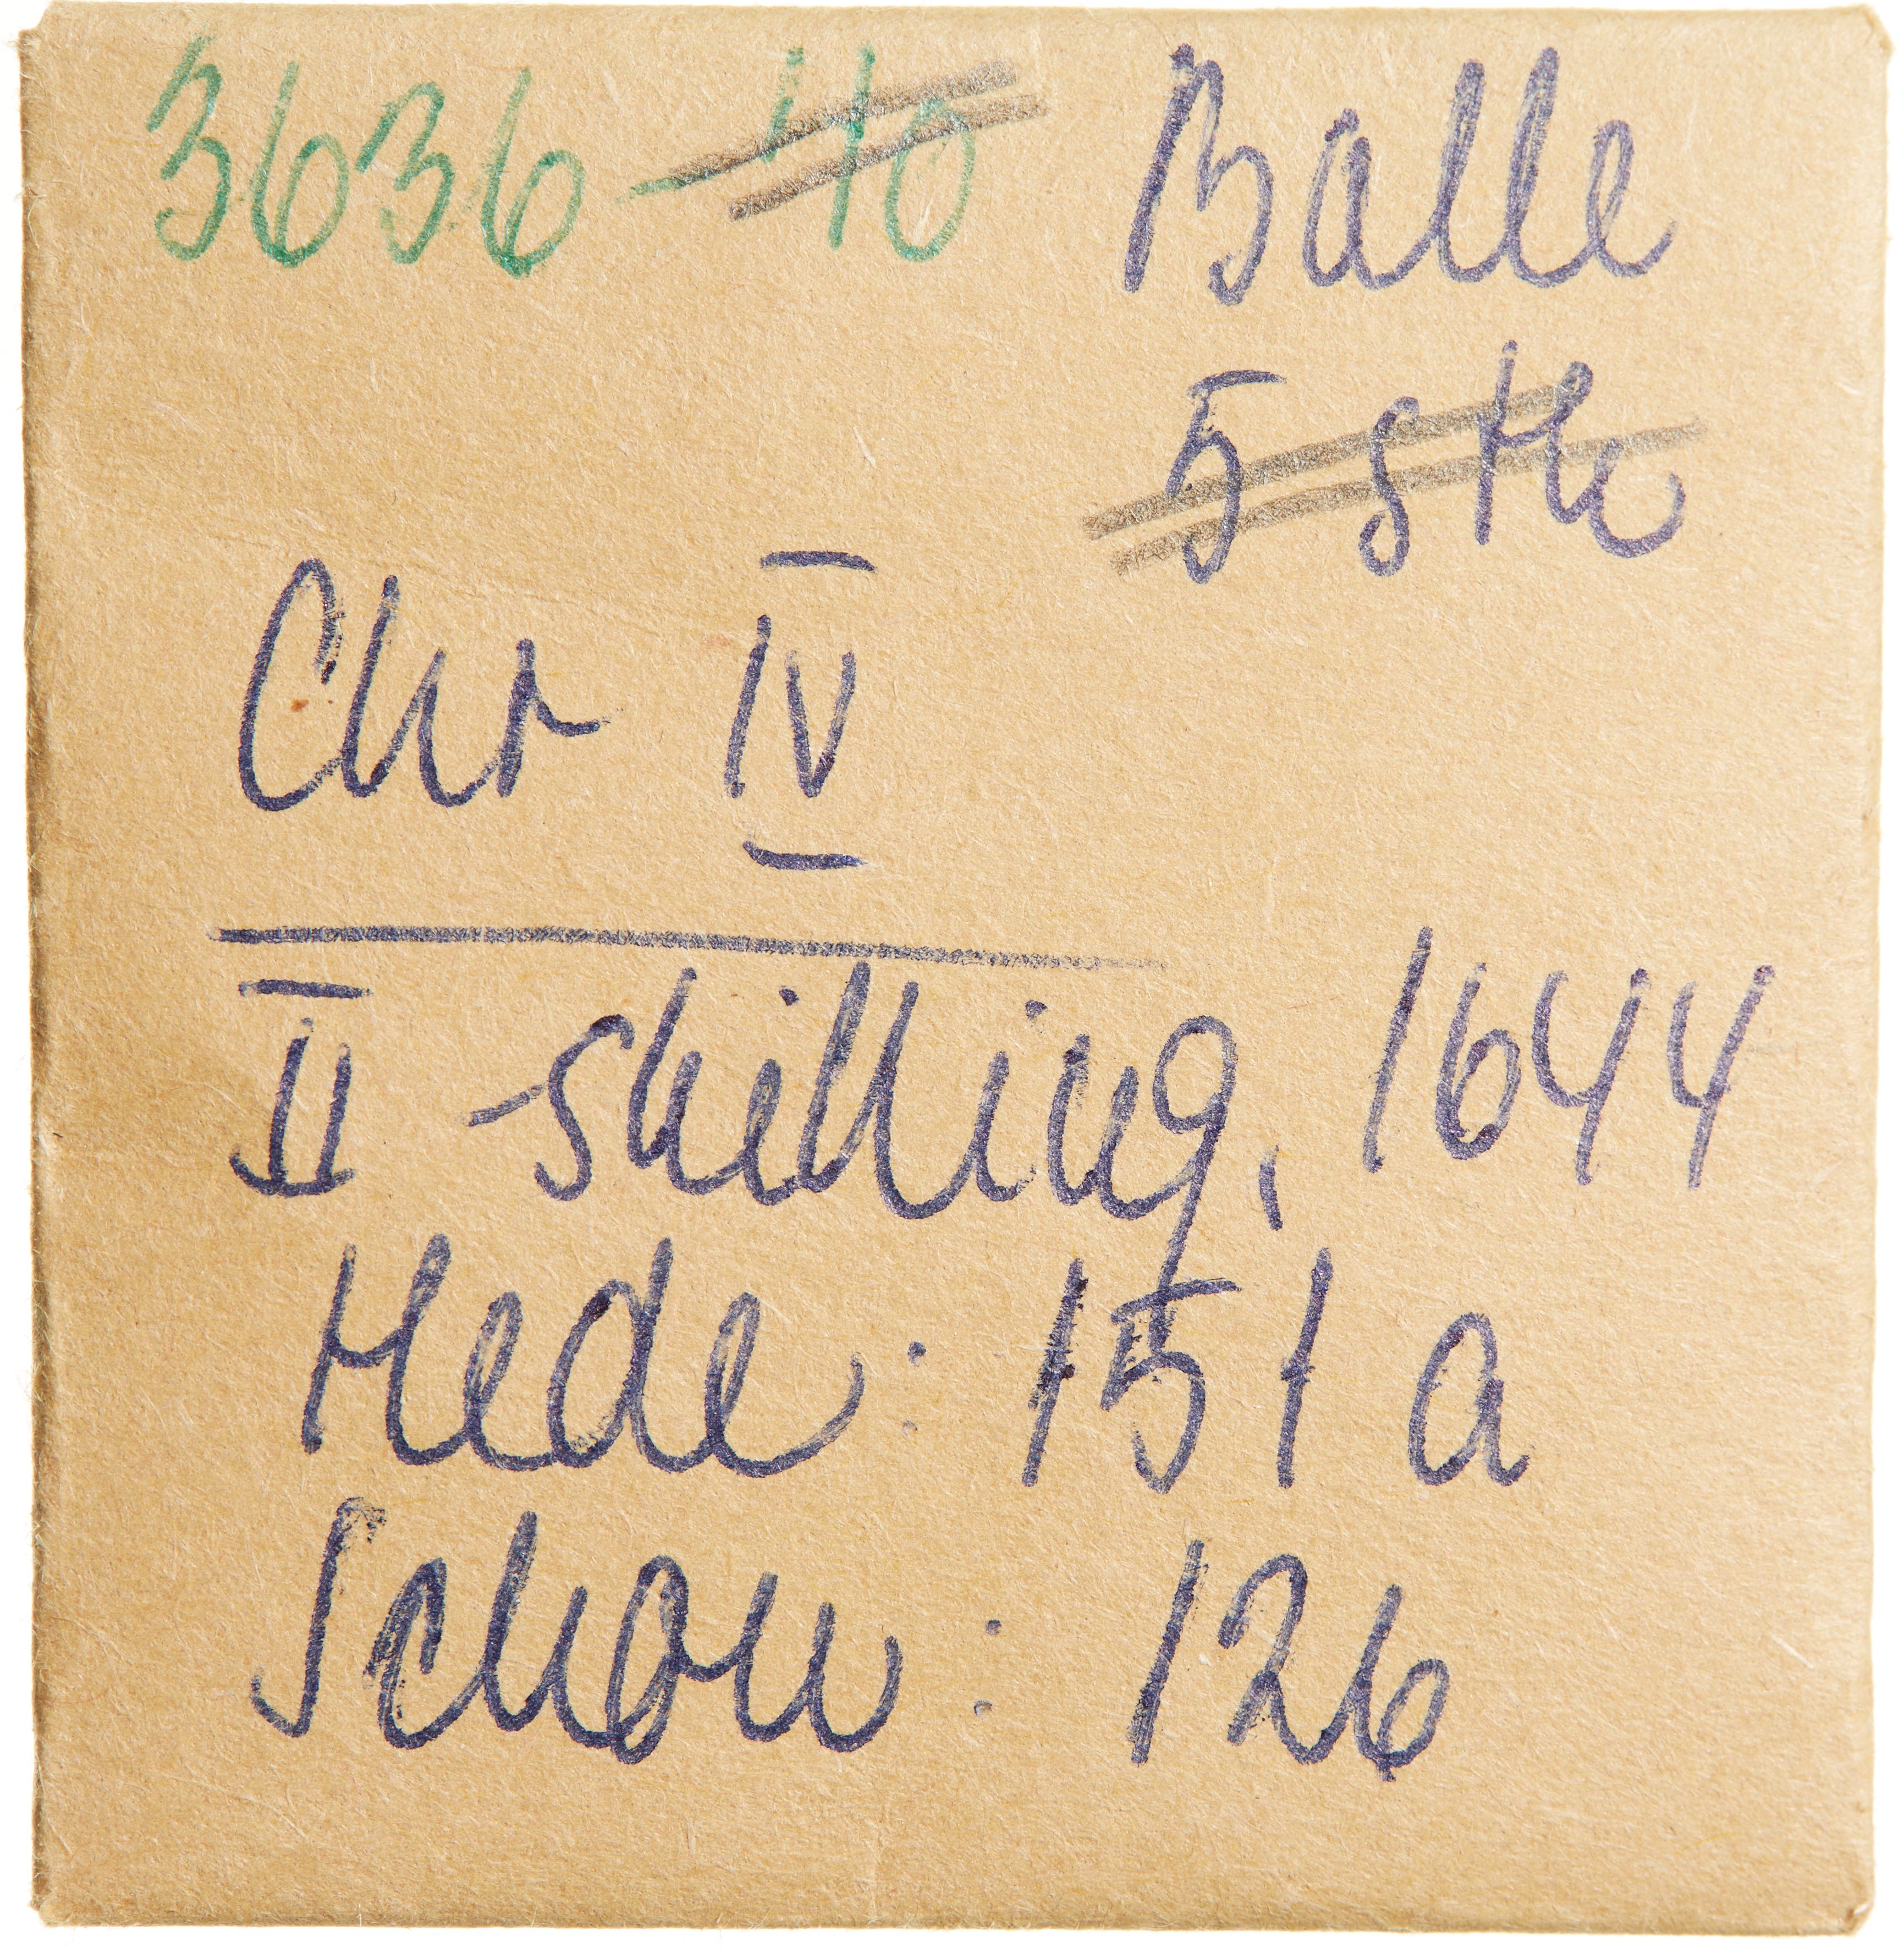 3636-40 Balle
5 stk
Chr IV
II skilling, 1644
Hede: 151 a
Schou: 126